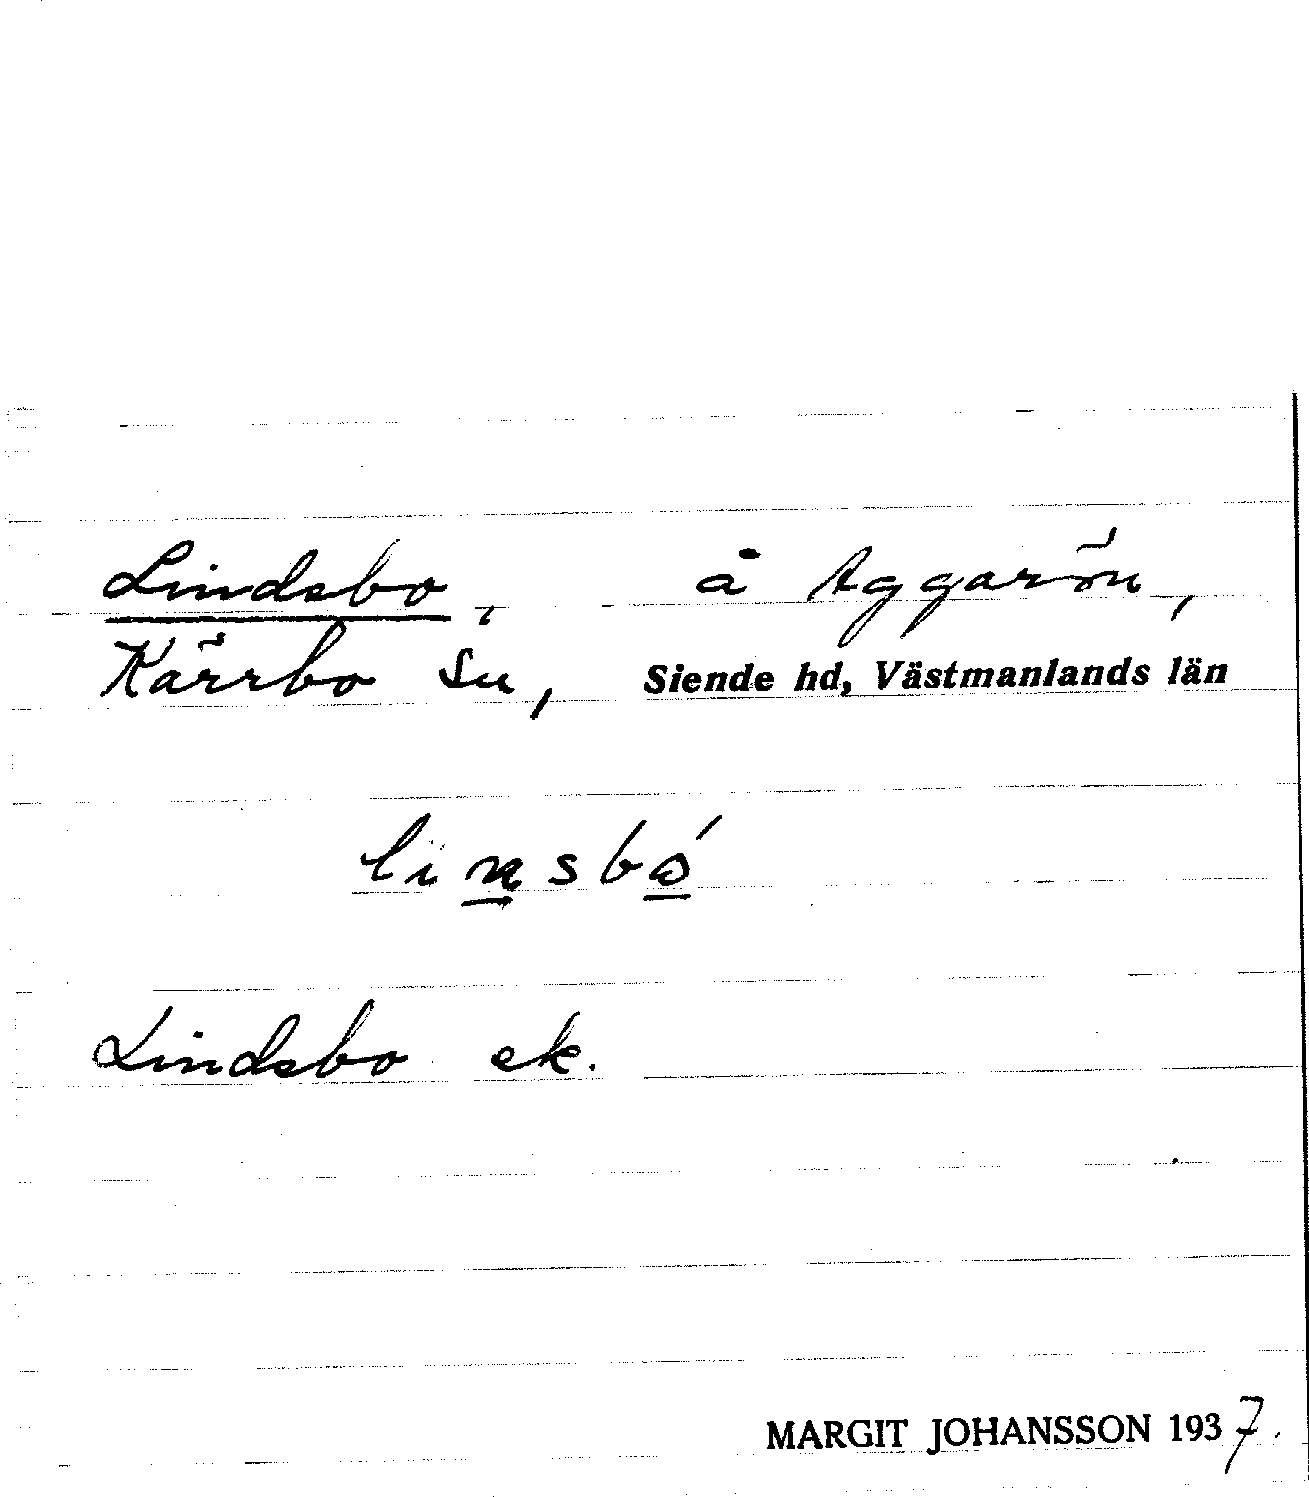 Lindsbo, å Aggarön,
Kärrbo Sn, Siende hd, Västmanlands län
linsbó
Lindsbo ek.
MARGIT JOHANSSON 1937.